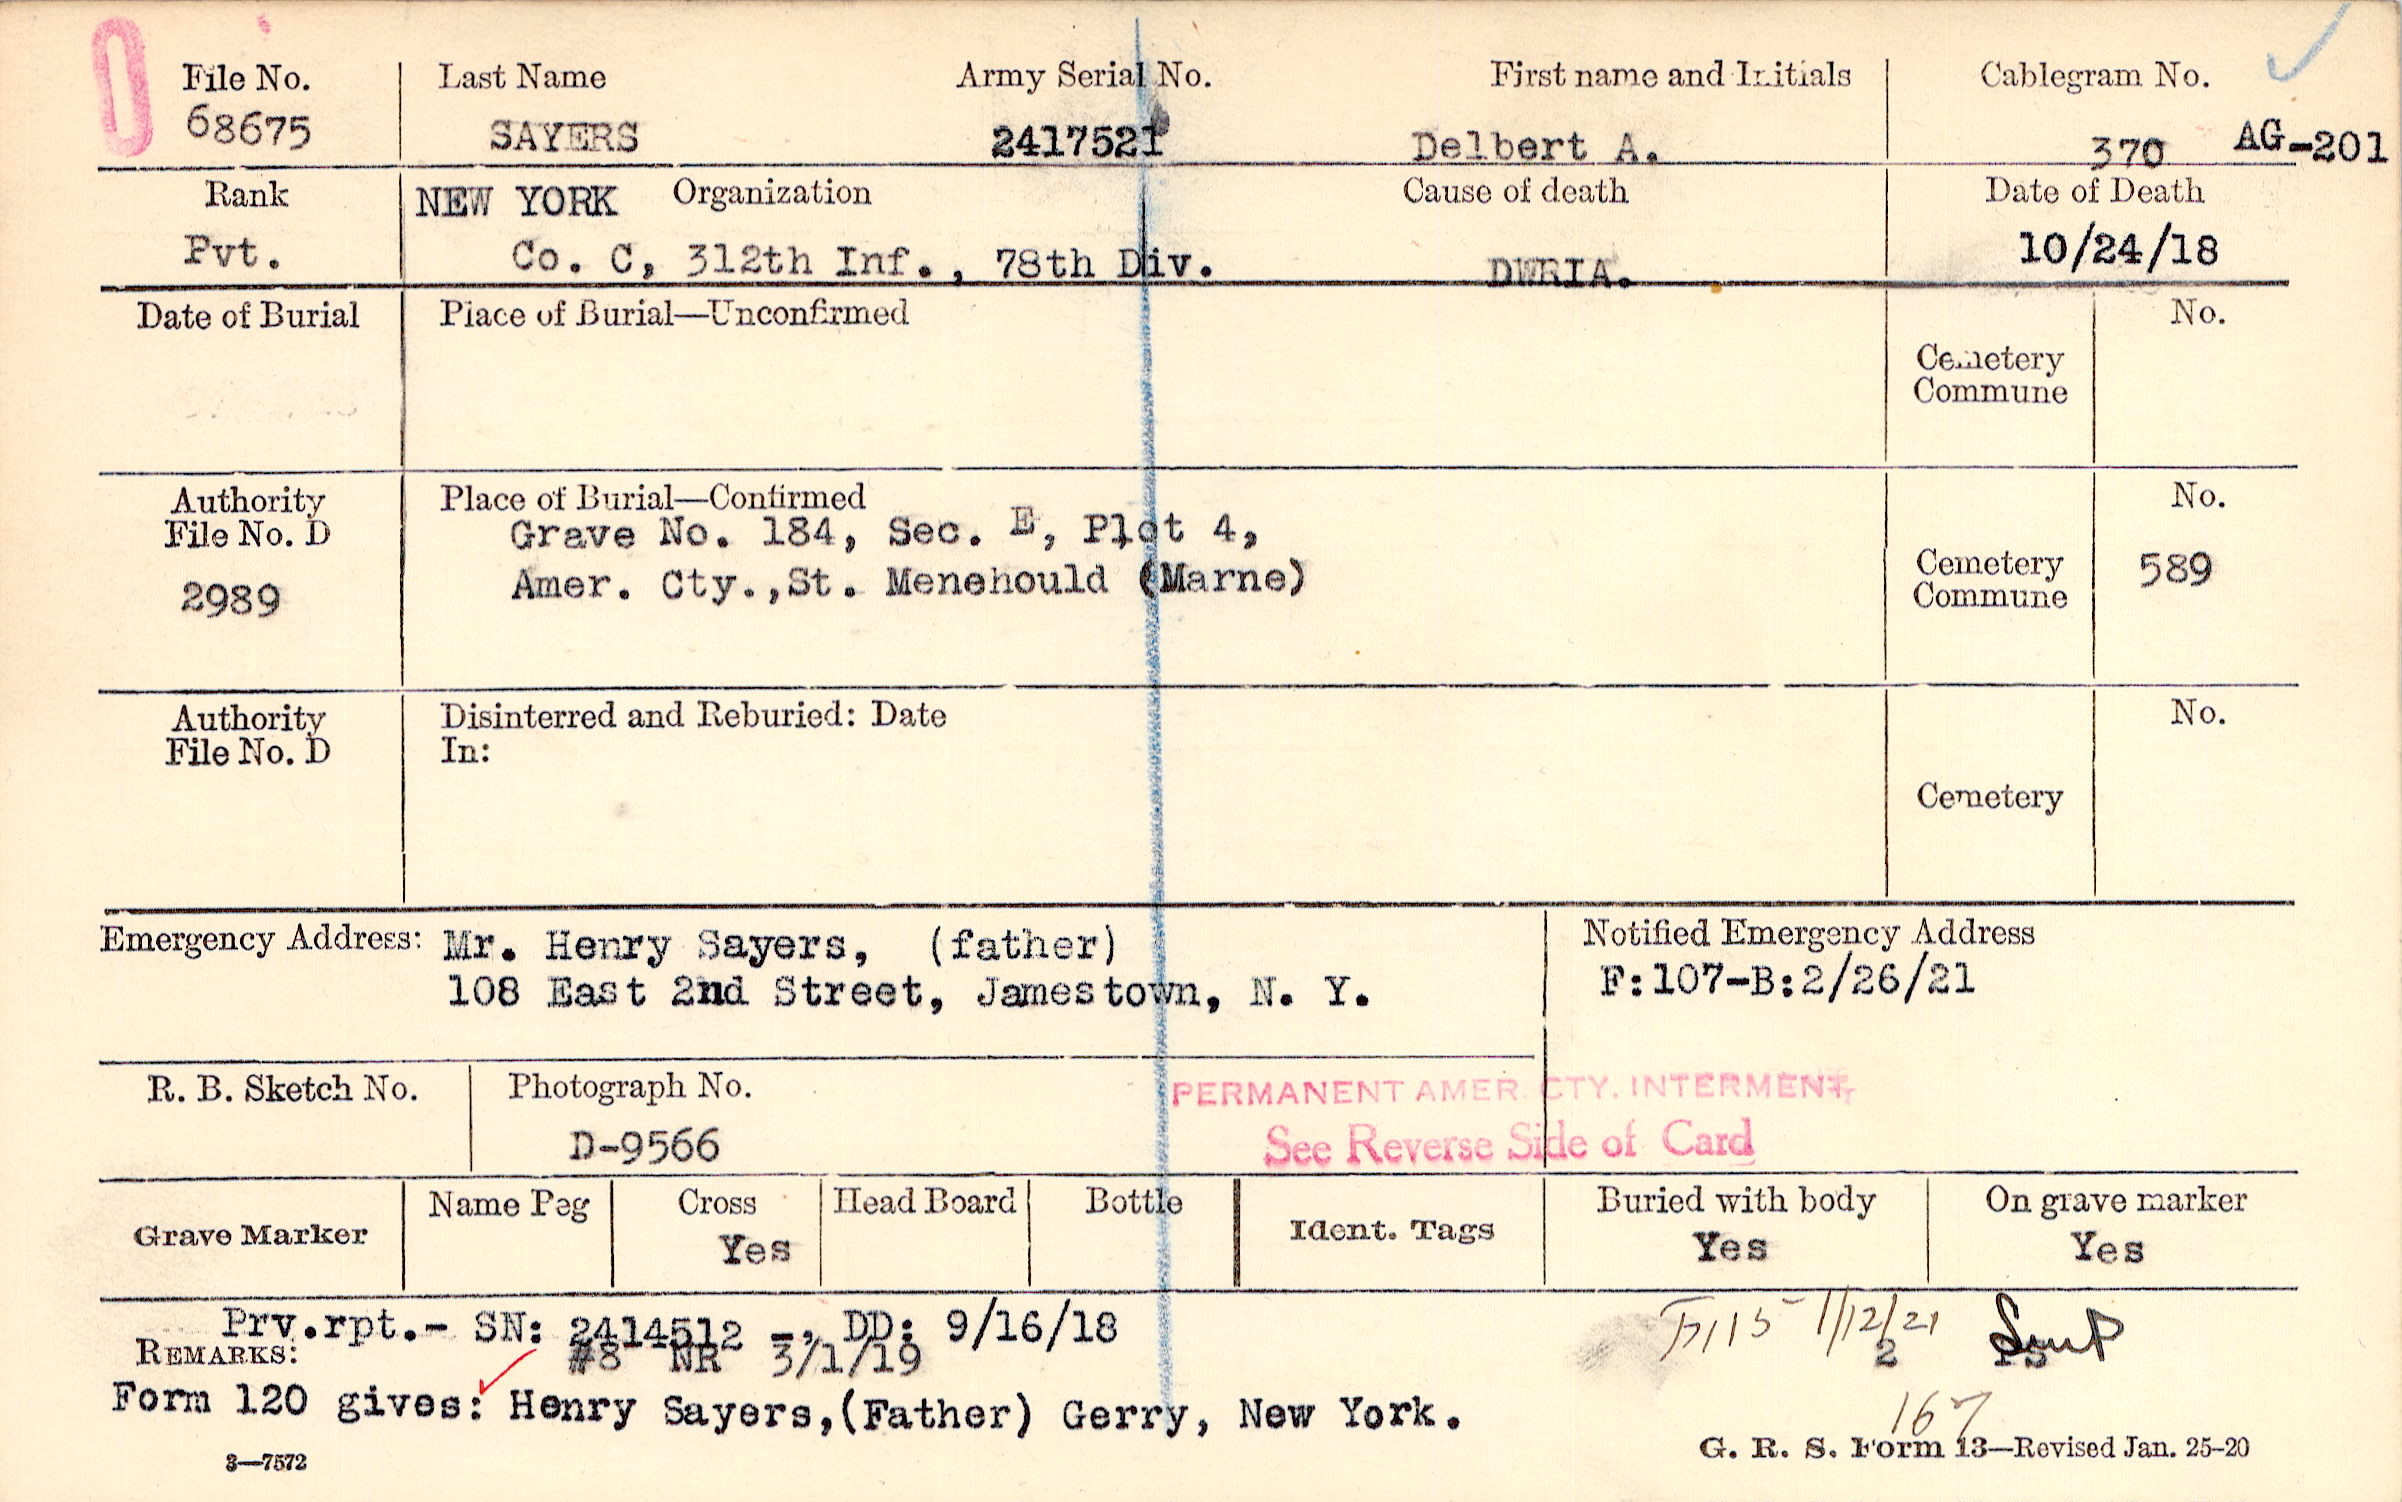 File No. Last Name Army Serial No. First name and Initials Cablegram No.
68675 SAYERS 2417521 Delbert A. 370 AG-201
Rank NEW YORK Organization Cause of death Date of Death
Pvt. Co. C, 312th Inf., 78th Div. DWRIA. 10/24/18
Date of Burial Place of Burial—Unconfirmed No.
Cemetery
Commune
Authority Place of Burial—Confirmed No.
File No. D Grave No. 184, Sec. E, Plot 4,
2989 Amer. Cty.,St. Menehould (Marne) Cemetery 589
Commune
Authority Disinterred and Reburied: Date No.
File No. D In:
Cemetery
Emergency Address: Mr. Henry Sayers, (father) Notified Emergency Address
108 East 2nd Street, Jamestown, N. Y. F:107-B:2/26/21
R. B. Sketch No. Photograph No. PERMANENT AMER. CTY. INTERMENT
D-9566 See Reverse Side of Card
Grave Marker Name Peg Cross Head Board Bottle Ident. Tags Buried with body On grave marker
Yes Yes Yes
Prv.rpt.- SN: 2414512 -, DD: 9/16/18 1/12/21
REMARKS: #8 NR 3/1/19 2
Form 120 gives: Henry Sayers,(Father) Gerry, New York. 167
3—7572 G. R. S. Form 13—Revised Jan. 25-20